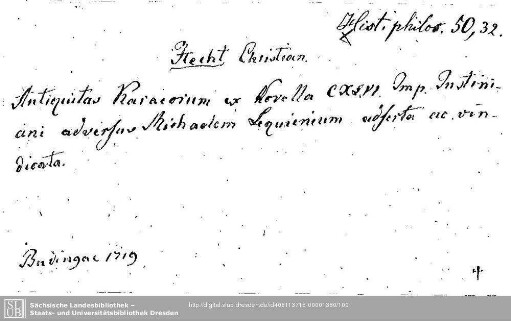 Hist. philos. 50, 32.
Hecht Christian.
Antiquitas Karaeorum ex Novella CXLVI. Imp. Justini-
ani adversus Michaelem Lequienium adserta ac vin-
dicata.
Budingae 1719
SLUB
Sächsische Landesbibliothek –
Staats- und Universitätsbibliothek Dresden